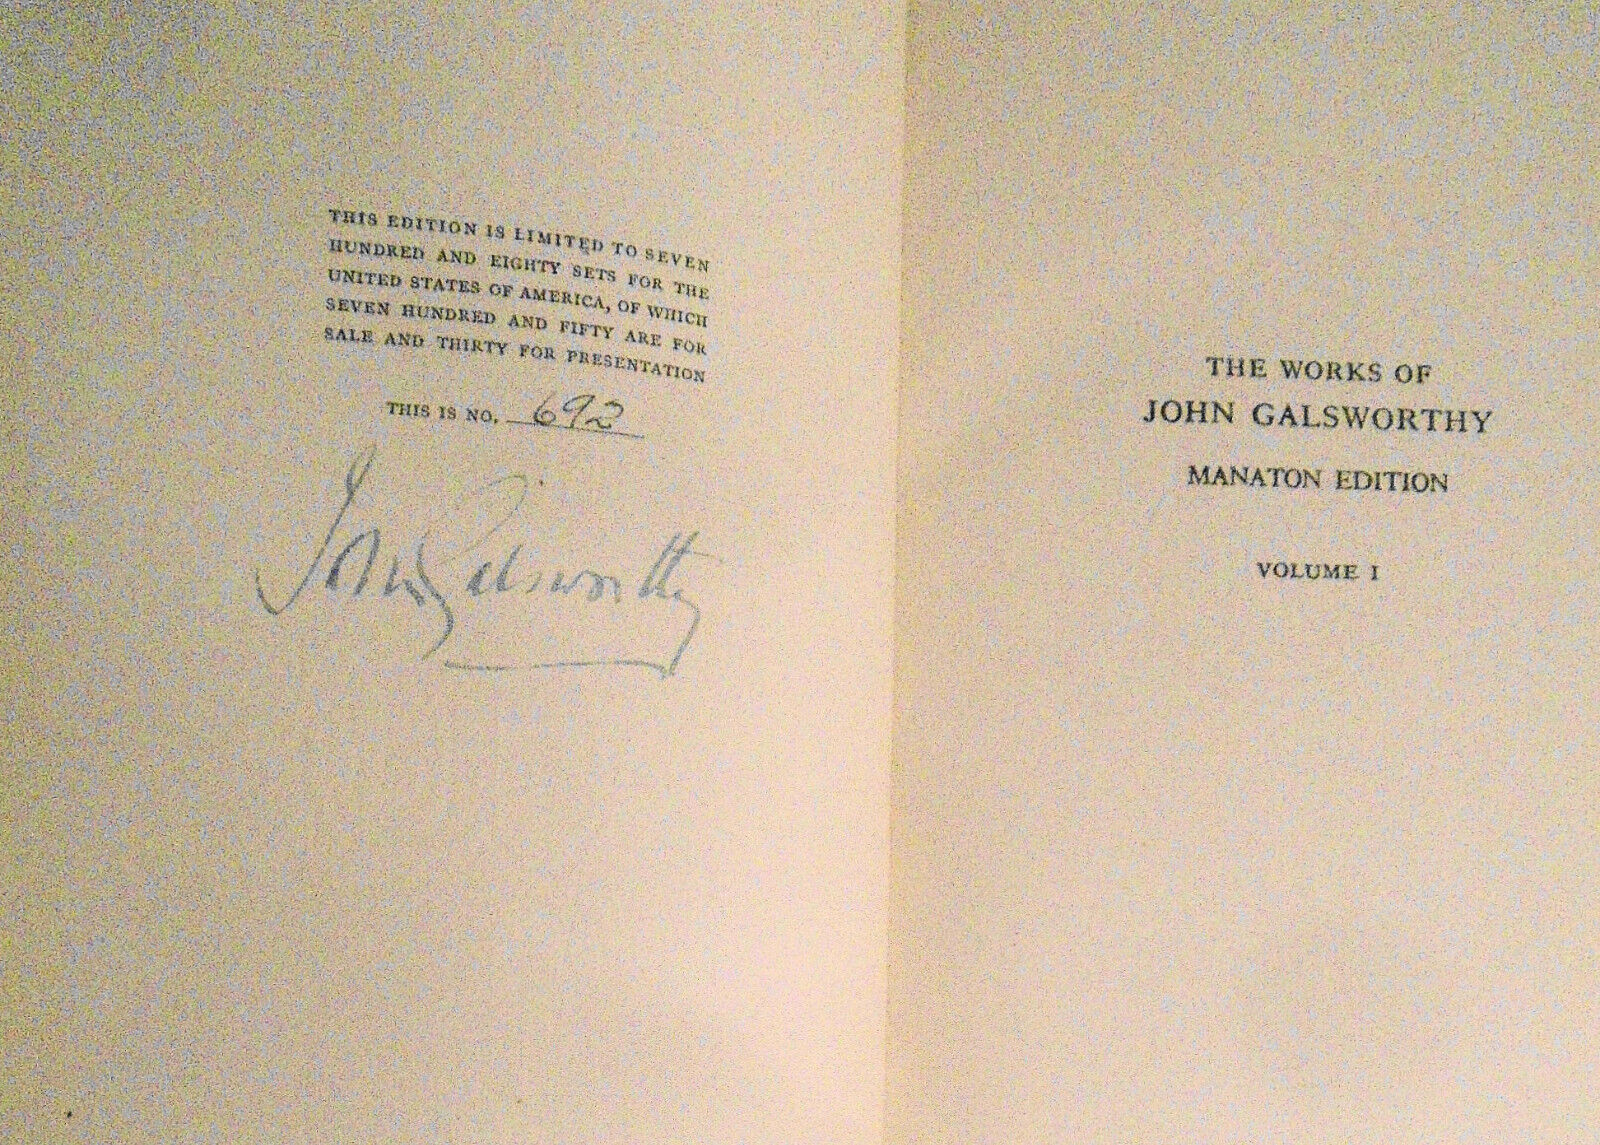 THIS EDITION IS LIMITED TO SEVEN
HUNDRED AND EIGHTY SETS FOR THE
UNITED STATES OF AMERICA, OF WHICH
SEVEN HUNDRED AND FIFTY ARE FOR
SALE AND THIRTY FOR PRESENTATION
THIS IS NO. 692
John Galsworthy
THE WORKS OF
JOHN GALSWORTHY
MANATON EDITION
VOLUME I